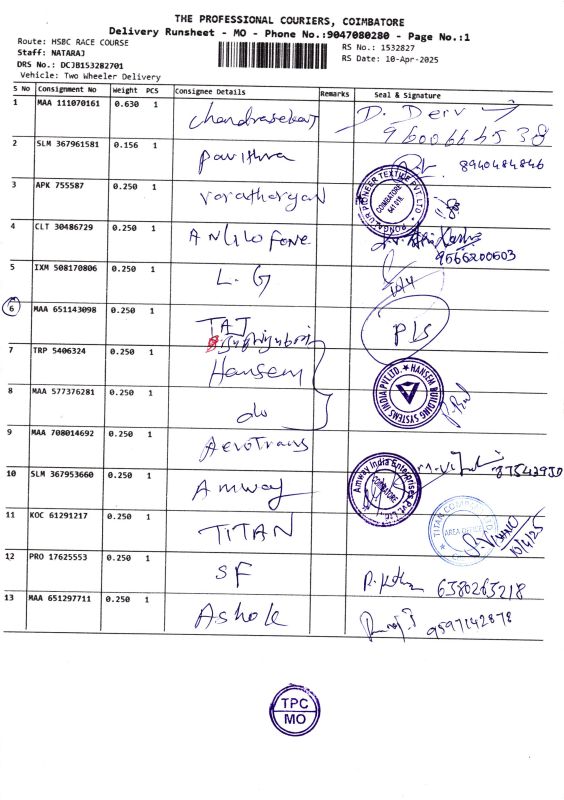 THE PROFESSIONAL COURIERS, COIMBATORE
Delivery Runsheet - MO - Phone No.:9047080280 - Page No.:1
Route: HSBC RACE COURSE
Staff: NATARAJ
DRS No.: DCJB153282701
Vehicle: Two Wheeler Delivery
RS No.: 1532827
RS Date: 10-Apr-2025
S No Consignment No Weight PCS Consignee Details Remarks Seal & Signature
1 MAA 111070161 0.630 1 D. Devi
2 SLM 367961581 0.156 1 pavithra 8940484846
3 APK 755587 0.250 1 PONGALUR PIONEER TEXTILE PVT LTD COIMBATORE
4 CLT 30486729 0.250 1 9566200503
5 IXM 508170806 0.250 1 L. G 10/4
6 MAA 651143098 0.250 1 TAJ PLS
7 TRP 5406324 0.250 1 Hansem HANSEM BUILDING SYSTEMS INDIA PVT LTD.
8 MAA 577376281 0.250 1 do
9 MAA 708014692 0.250 1 AeroTrans
10 SLM 367953660 0.250 1 Amway Amway India Enterprises Pvt. Ltd. COIMBATORE
11 KOC 61291217 0.250 1 TITAN TITAN 10/4/25
12 PRO 17625553 0.250 1 SF 6380263218
13 MAA 651297711 0.250 1 Ashok 9597142878
TPC
MO